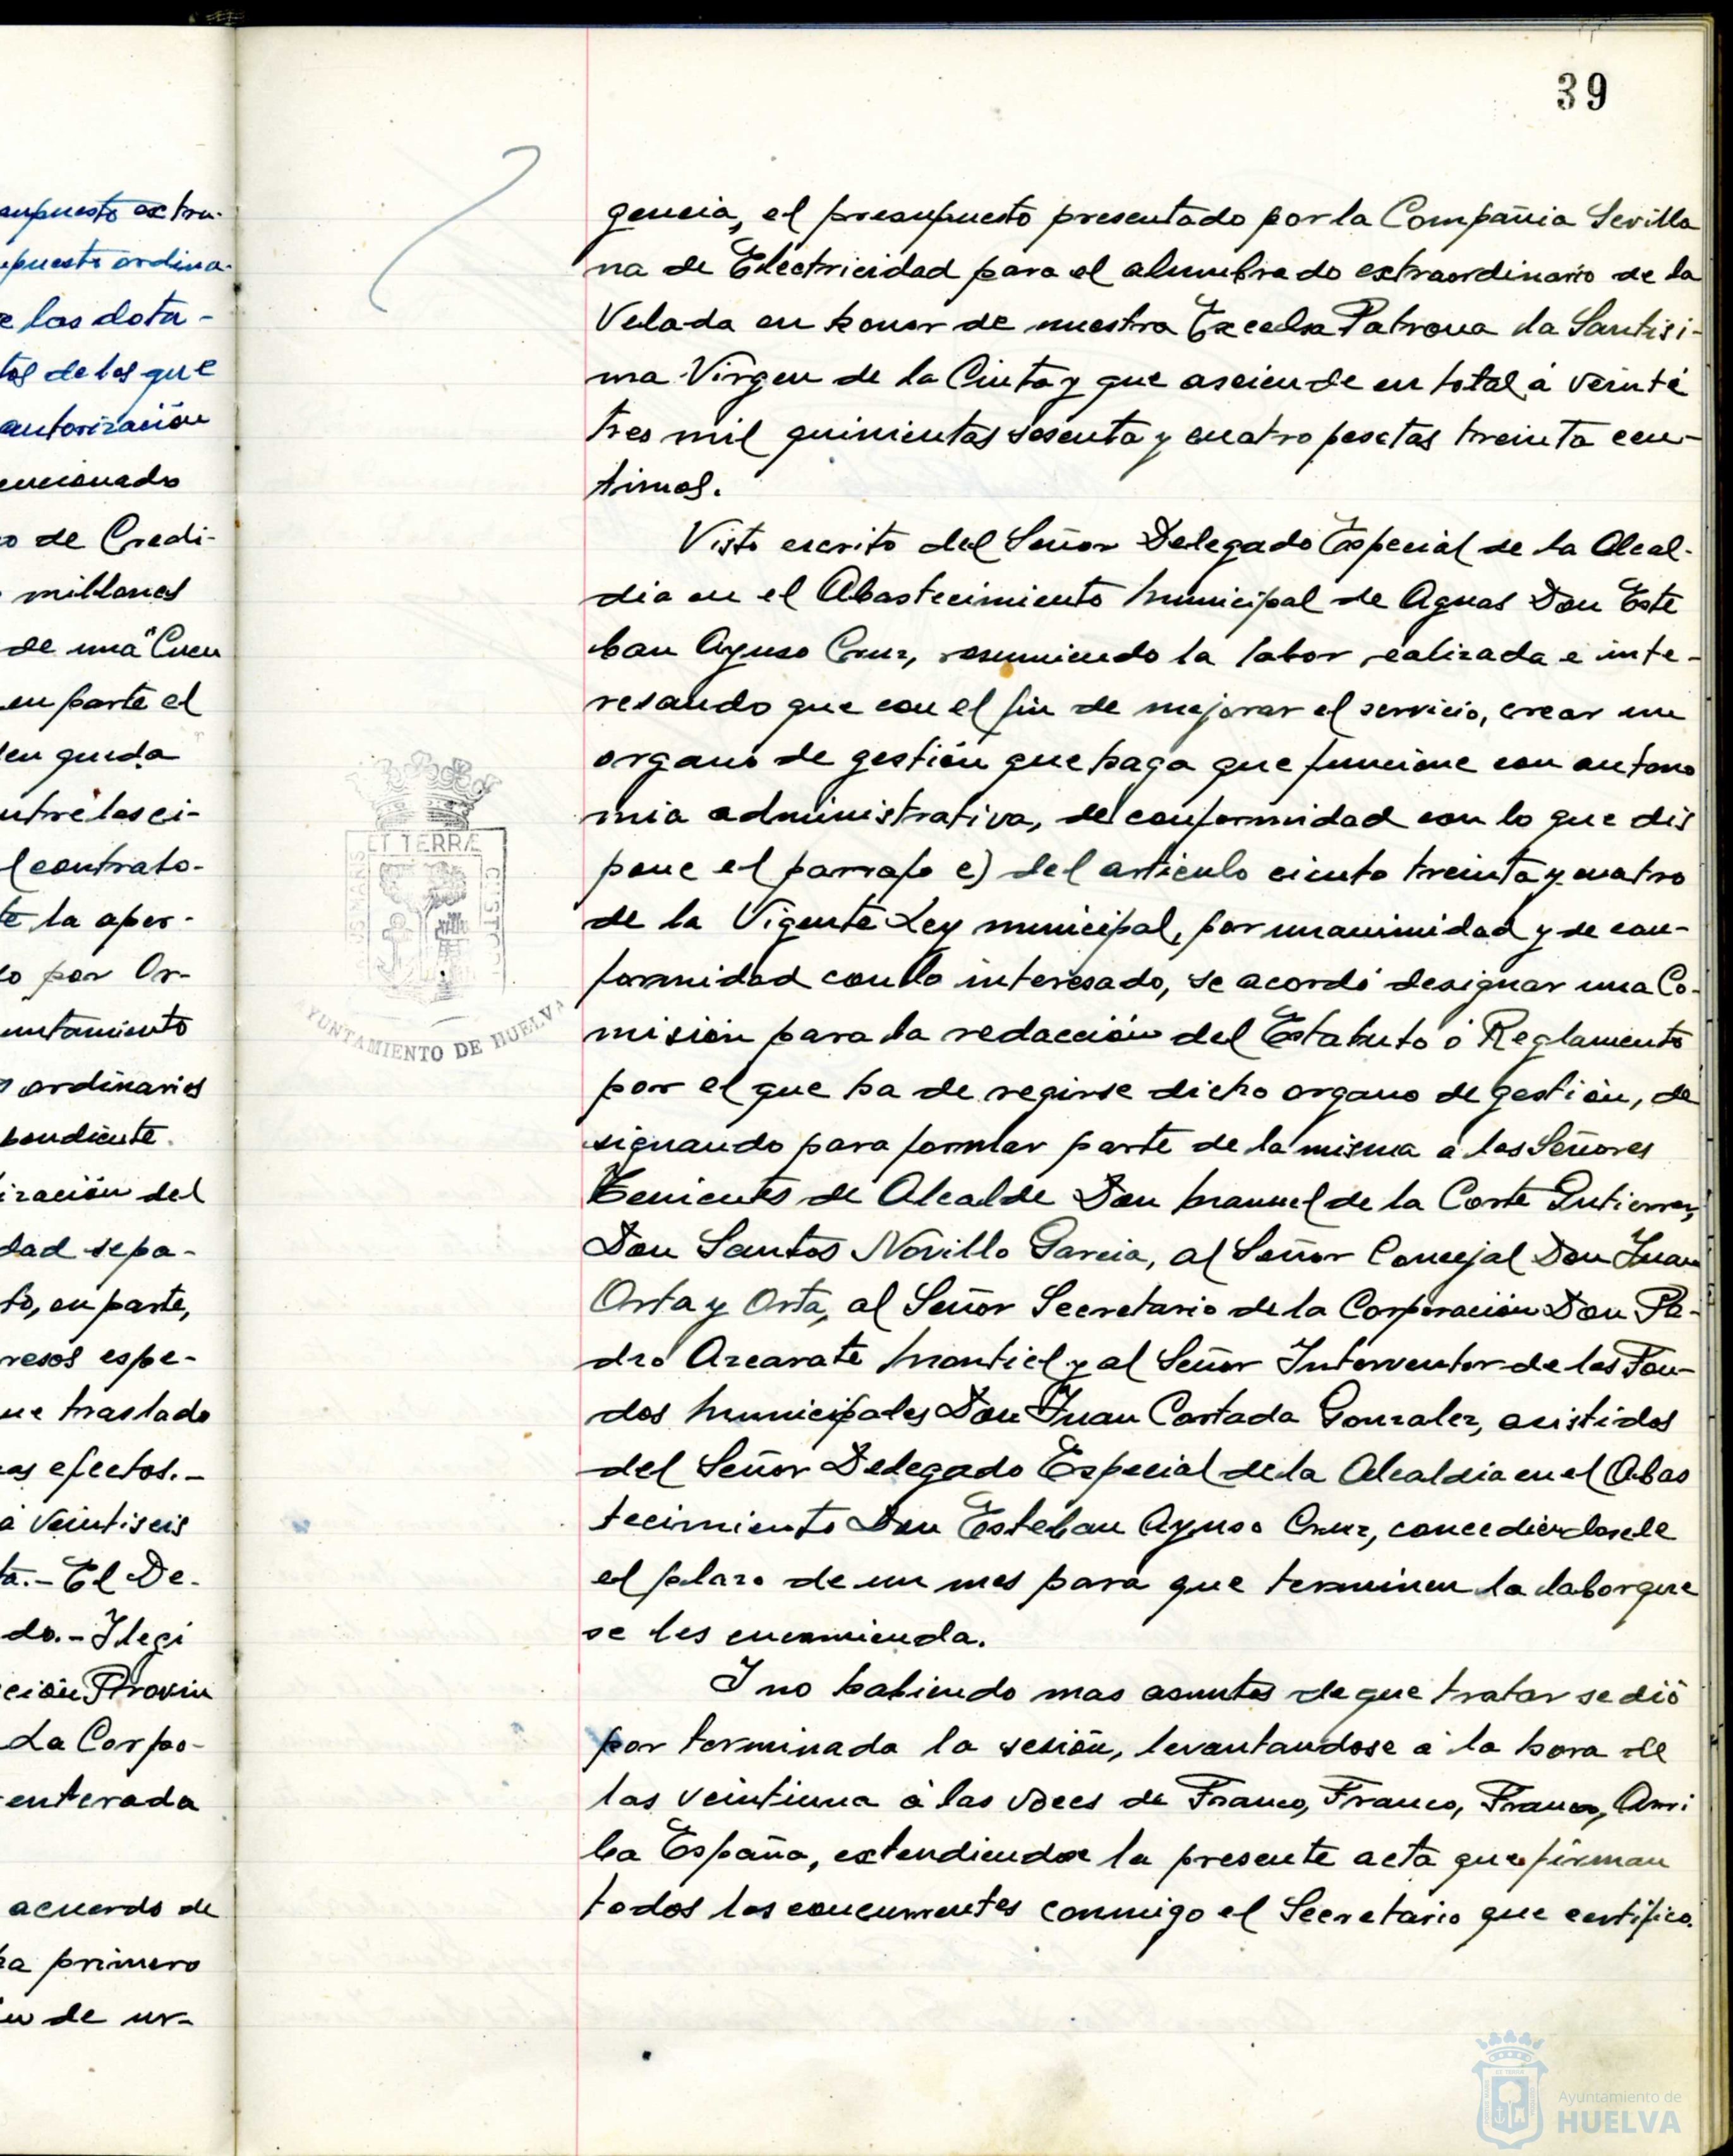 39
supuesto extra-
puesto ordina-
e las dota-
tos de los que
autorización
encionado
o de Credi-
millones
de una "Cuen
en parte el
ien queda
ntre los ci-
l contrato-
te la aper-
o por Or-
untamiento
ordinarios
pondiente.
ización del
dad sepa-
to, en parte,
resos espe-
ue traslado
os efectos.-
a veintiseis
ta.- El De-
do.- Ilegi
ción Provin
La Corpo-
enterada
acuerdo de
ha primero
de ur-
gencia, el presupuesto presentado por la Compañia Sevilla
na de Electricidad para el alumbrado extraordinario de la
Velada en honor de nuestra Excelsa Patrona la Santisi-
ma Virgen de la Cinta y que asciende en total á veinte
tres mil quinientas sesenta y cuatro pesetas treinta cen-
timos.
Visto escrito del Señor Delegado Especial de la Alcal-
dia en el Abastecimiento Municipal de Aguas Don Este
ban Ayuso Cruz, resumiendo la labor realizada e inte-
resando que con el fin de mejorar el servicio, crear un
organo de gestión que haga que funcione con autono
mia administrativa, de conformidad con lo que dis
pone el parrafo e) del articulo ciento treinta y cuatro
de la Vigente Ley municipal, por unanimidad y de con-
formidad con lo interesado, se acordó designar una Co-
misión para la redacción del Estatuto ó Reglamento
por el que ha de regirse dicho organo de gestión, de
signando para formar parte de la misma a los Señores
Tenientes de Alcalde Don Manuel de la Corte Gutierrez,
Don Santos Novillo Garcia, al Señor Concejal Don Juan
Orta y Orta, al Señor Secretario de la Corporación Don Pe-
dro Azcarate Montiel y al Señor Interventor de los Fon-
dos Municipales Don Juan Cortada Gonzalez, asistidos
del Señor Delegado Especial de la Alcaldia en el Abas
tecimiento Don Esteban Ayuso Cruz, concediendosele
el plazo de un mes para que terminen la labor que
se les encomienda.
Y no habiendo mas asuntos de que tratar se dió
por terminada la sesión, levantandose á la hora de
las veintiuna á las voces de Franco, Franco, Franco, Arri
ba España, extendiendose la presente acta que firman
todos los concurrentes conmigo el Secretario que certifico.
ET TERRÆ
AYUNTAMIENTO DE HUELVA
Ayuntamiento de
HUELVA